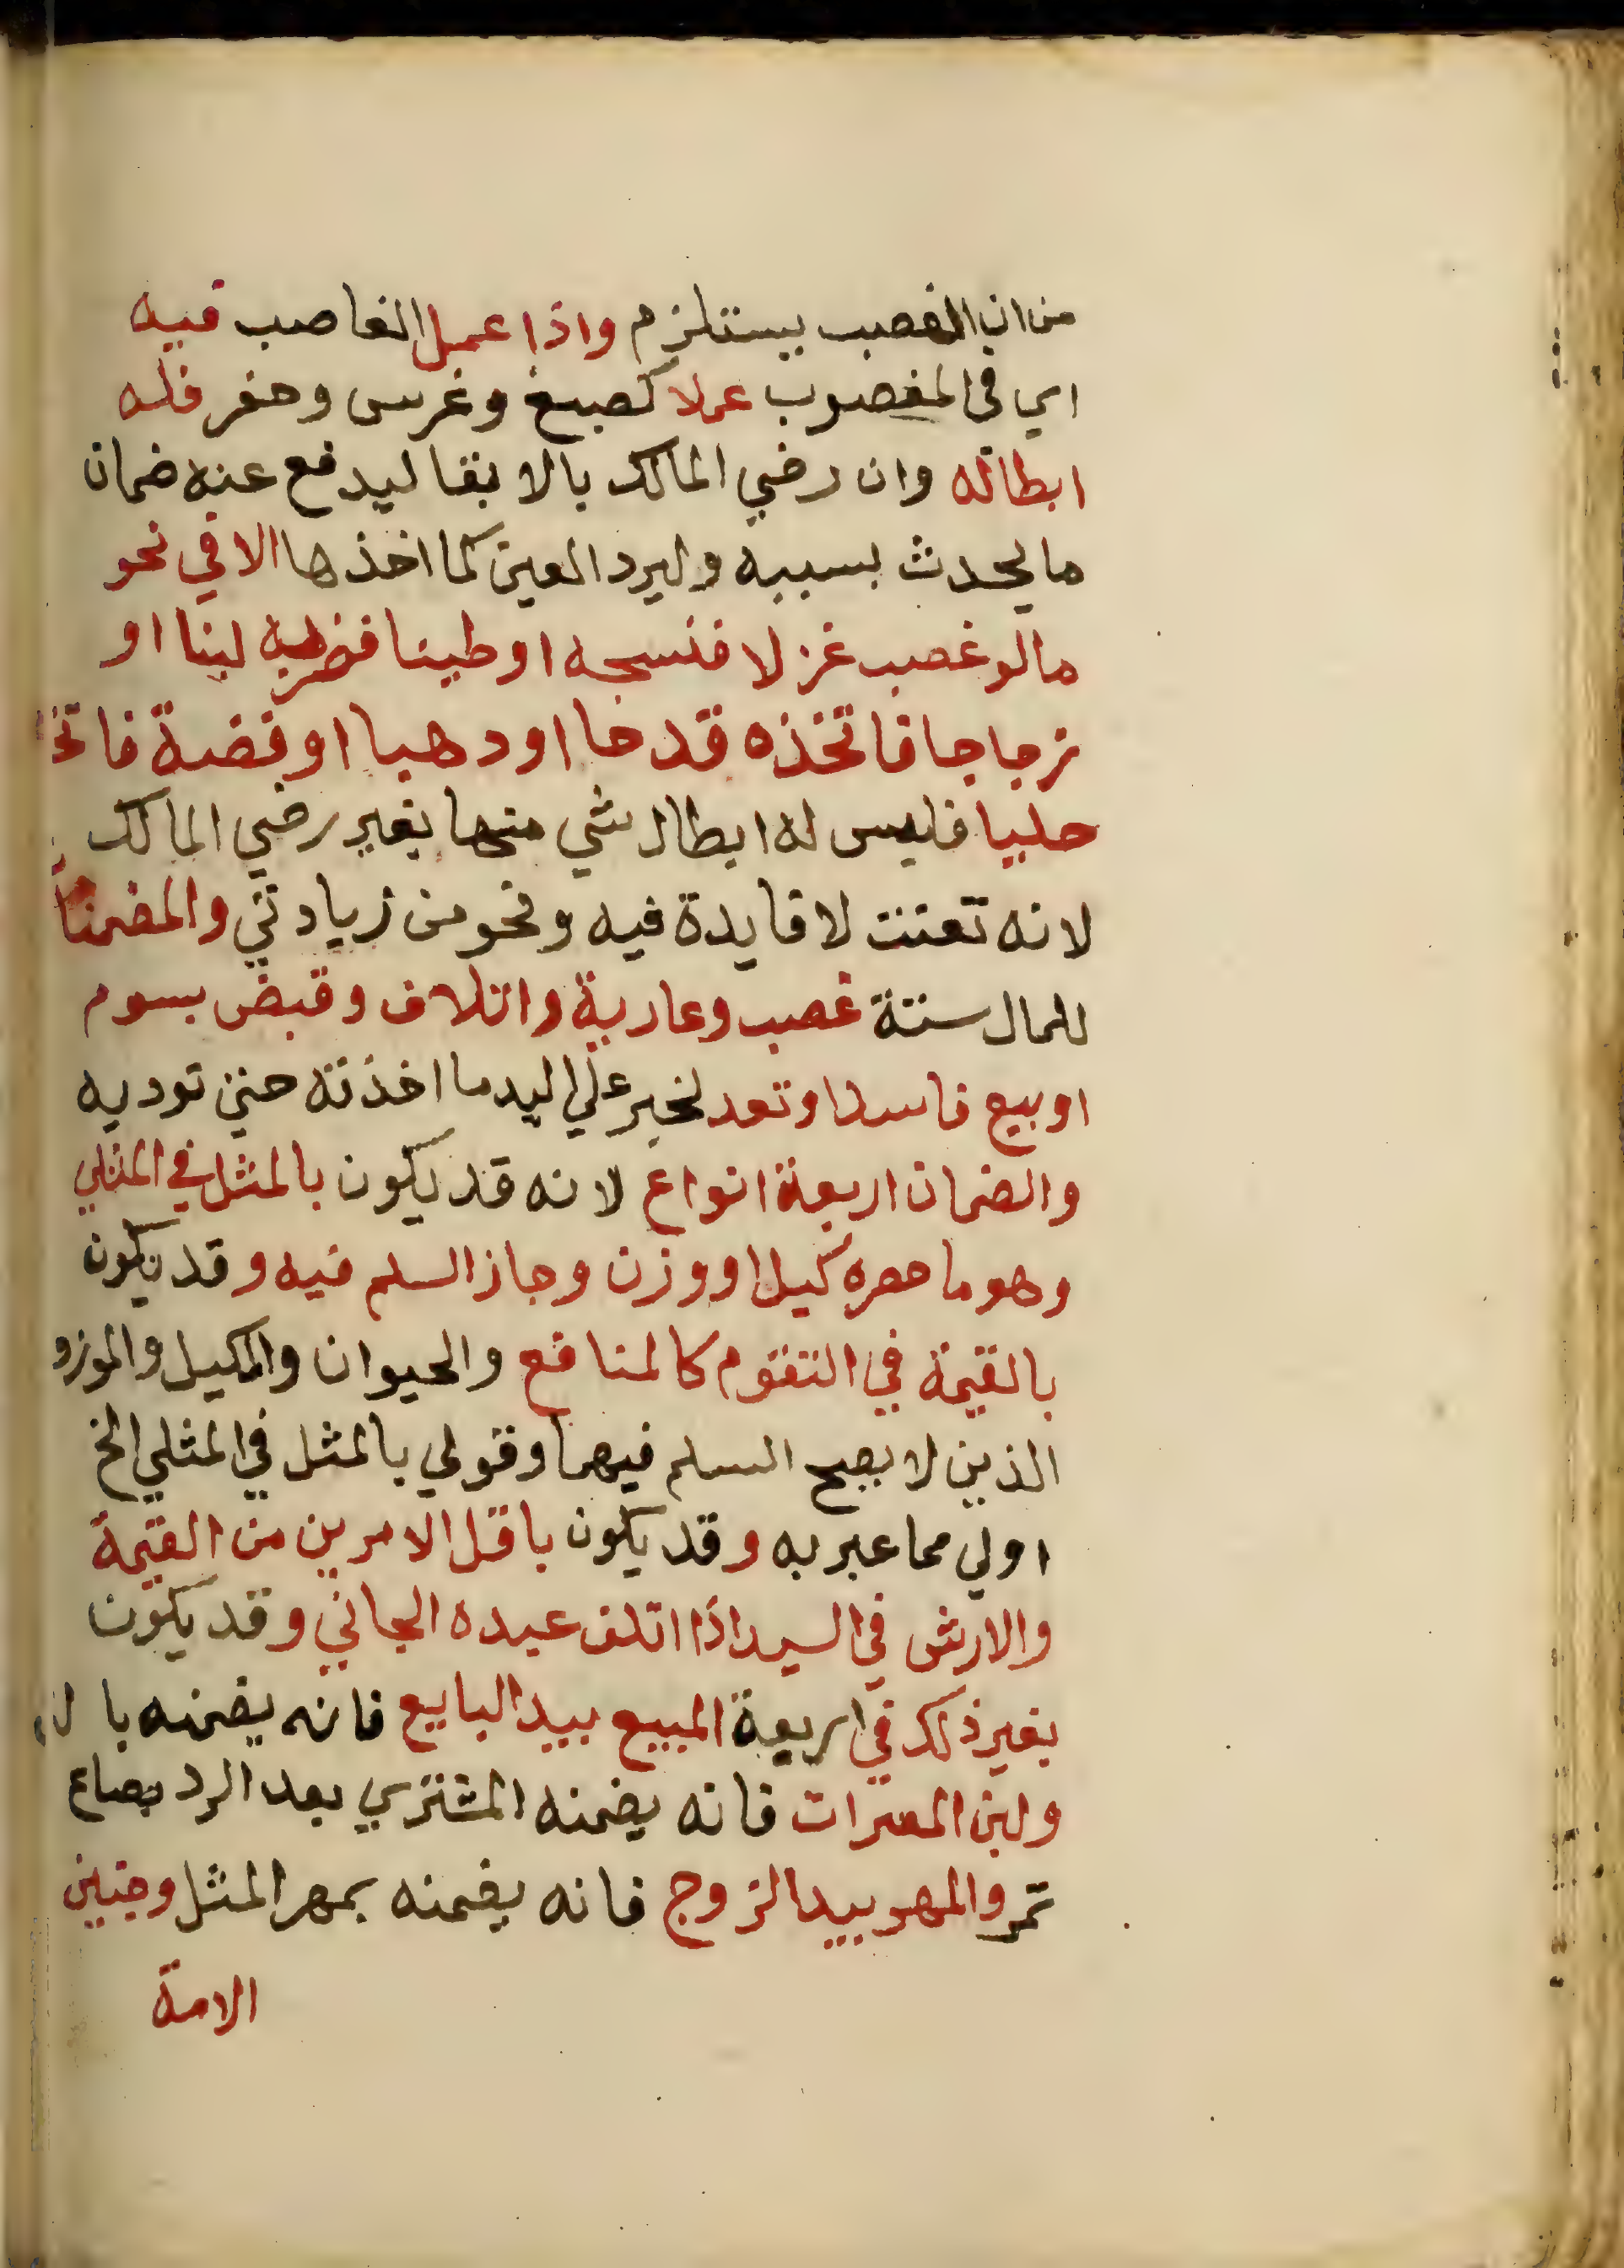 من ان الغصب يستلزم واذا عمل الغاصب فيه
اي في المغصوب عملا كصبغ وغرس وحفر فله
ابطاله وان رضي المالك بالابقا ليدفع عنه ضمان
ما يحدث بسببه وليرد العين كما اخذها الا في نحو
ما لو غصب غزلا فنسجه او طينا فضربه لبنا او
زجاجا فاتخذه قدحا او دهبا او فضة فاتخذ
حليا فليس له ابطال شي منها بغير رضي المالك
لانه تعنت لا فايدة فيه ونحو من زيادتي والمضمنات
للمال ستة غصب وعارية واتلاف وقبض بسوم
او بيع فاسد او تعد لخبر علي اليد ما اخذته حتي توديه
والضمان اربعة انواع لانه قد يكون بالمثل في المثلي
وهو ما حصره كيل او وزن وجاز السلم فيه وقد يكون
بالقيمة في المتقوم كالمنافع والحيوان والمكيل والموزو
الذين لا يصح السلم فيهما وقولي بالمثل في المثلي الخ
اولي مما عبر به وقد يكون باقل الامرين من القيمة
والارش في السيد اذا اتلف عبده الجاني وقد يكون
بغير ذلك في اربعة المبيع بيد البايع فانه يضمنه
ولبن المصرات فانه يضمنه المشتري بعد الرد بصاع
تمر والمهر بيد الزوج فانه يضمنه بمهر المثل وجنين
الامة